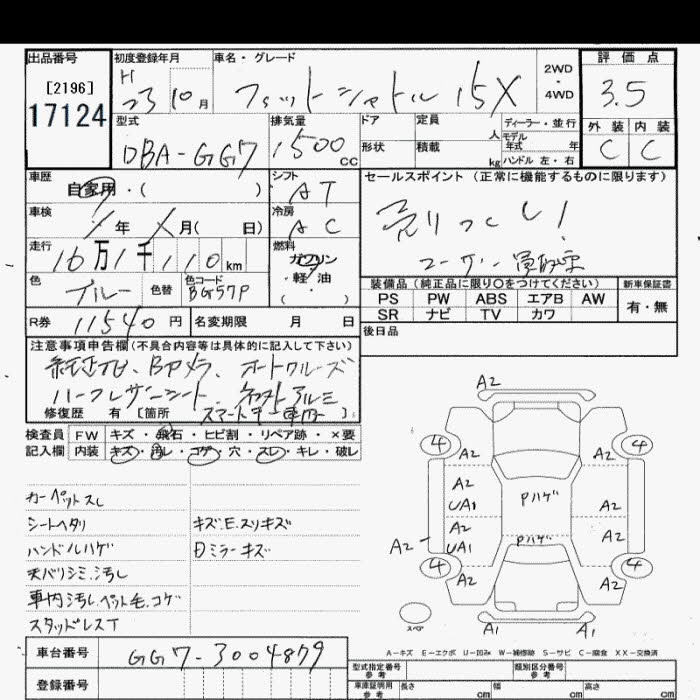 出品番号
[2196]
17124
初度登録年月
H
23 10月
車名・グレード
フィットシャトル 15X
2WD
・
4WD
評価点
3.5
外装 内装
C C
型式
DBA-GG7
排気量
1500 cc
ドア
形状
定員 人
積載 kg
ディーラー・並行
モデル年式 年
ハンドル 左・右
車歴
自家用・( )
シフト
AT
車検
年 月( 日)
冷房
AC
走行
16万1千110km
燃料
ガソリン
・軽・油
・( )
色
ブルー
色替
色コード
BG57P
R券 11540円
名変期限 月 日
セールスポイント(正常に機能するものに限ります)
売りつくし!
ユーザー買取車
装備品(純正品に限り〇をつけてください)
新車保証書
PS PW ABS エアB AW
SR ナビ TV カワ
有・無
後日品
注意事項申告欄(不具合内容等は具体的に記入して下さい)
純正ナビ、Bカメラ、オートクルーズ
ハーフレザーシート、社外アルミ
スマートキー
修復歴 有 [箇所 ]
検査員 FW キズ・飛石・ヒビ割・リペア跡・×要
記入欄 内装 キズ・汚レ・コゲ・穴・スレ・キレ・破レ
カーペットスレ
シートヘタリ
ハンドルハゲ
天バリシミ、汚レ
車内汚レ、ペット毛、コゲ
スタッドレスT
キズ、E、スリキズ
Dミラーキズ
A2
4 4
A2 A2
A2
UA1
Pハゲ
A2
A2
UA1
Pハゲ
A2
A2
4 4
A2 A2
スペア
A1 A1
A-キズ E-エクボ U-凹み W-補修跡 S-サビ C-腐食 XX-交換済
車台番号 GG7-3004879
登録番号
型式指定番号
参考
類別区分番号
参考
車庫証明用
参考
長さ cm 幅 cm 高さ cm